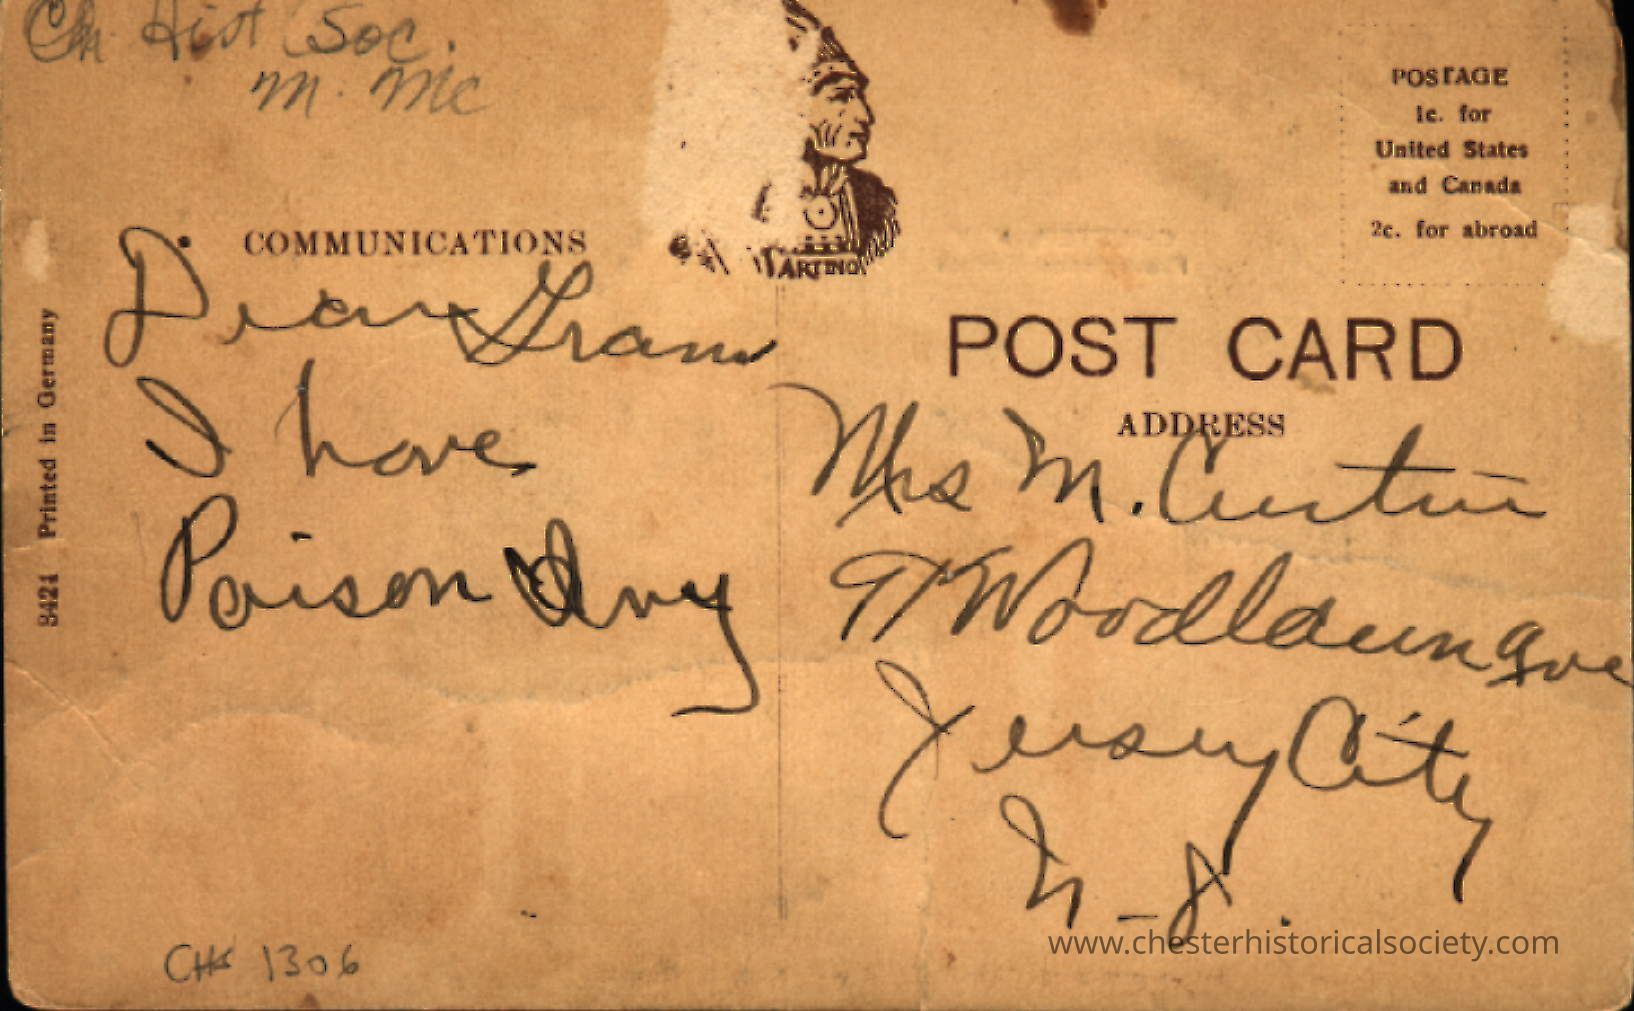 Ch. Hist Soc.
M. Mc
ARTINO
POSTAGE
1c. for
United States
and Canada
2c. for abroad
COMMUNICATIONS
POST CARD
ADDRESS
Dear Gram
I have
Poison Ivy
Mrs M. Curtin
Woodlawn Ave
Jersey City
N-J.
9424 Printed in Germany
CHS 1306
www.chesterhistoricalsociety.com